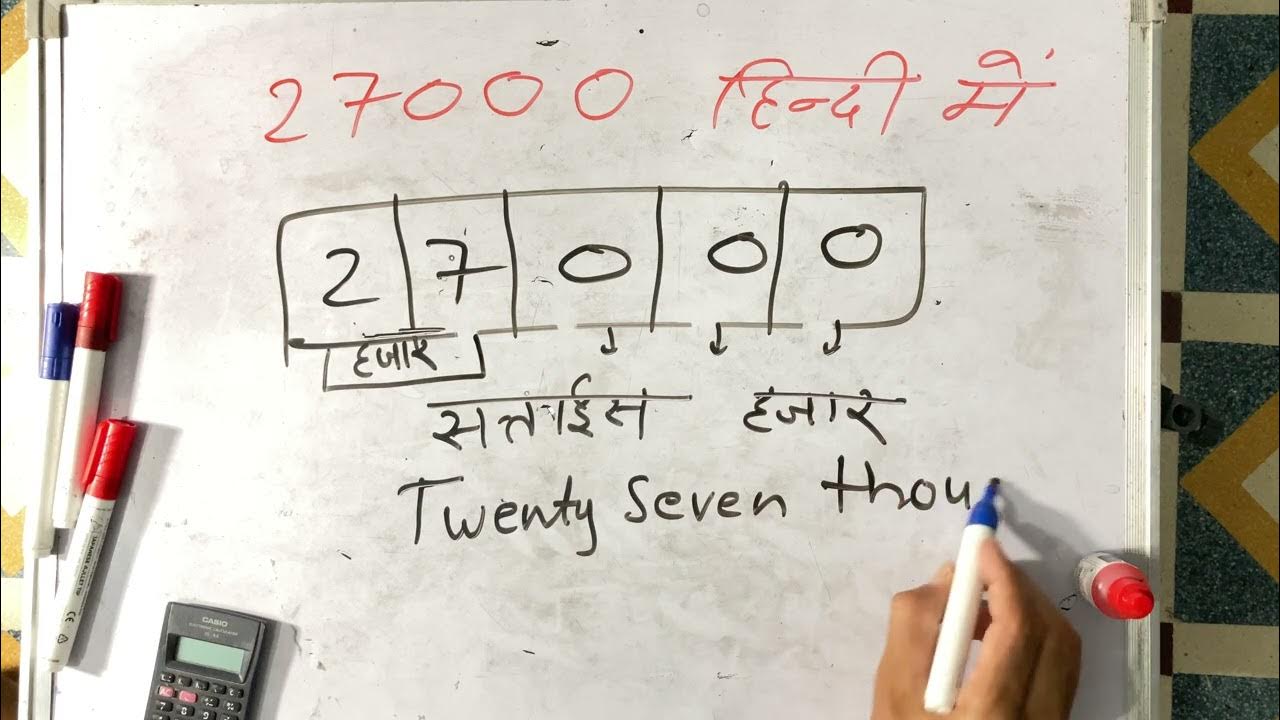 27000 हिन्दी में
2 7 0 0 0
हजार
सत्ताईस हजार
Twenty Seven thou
CASIO